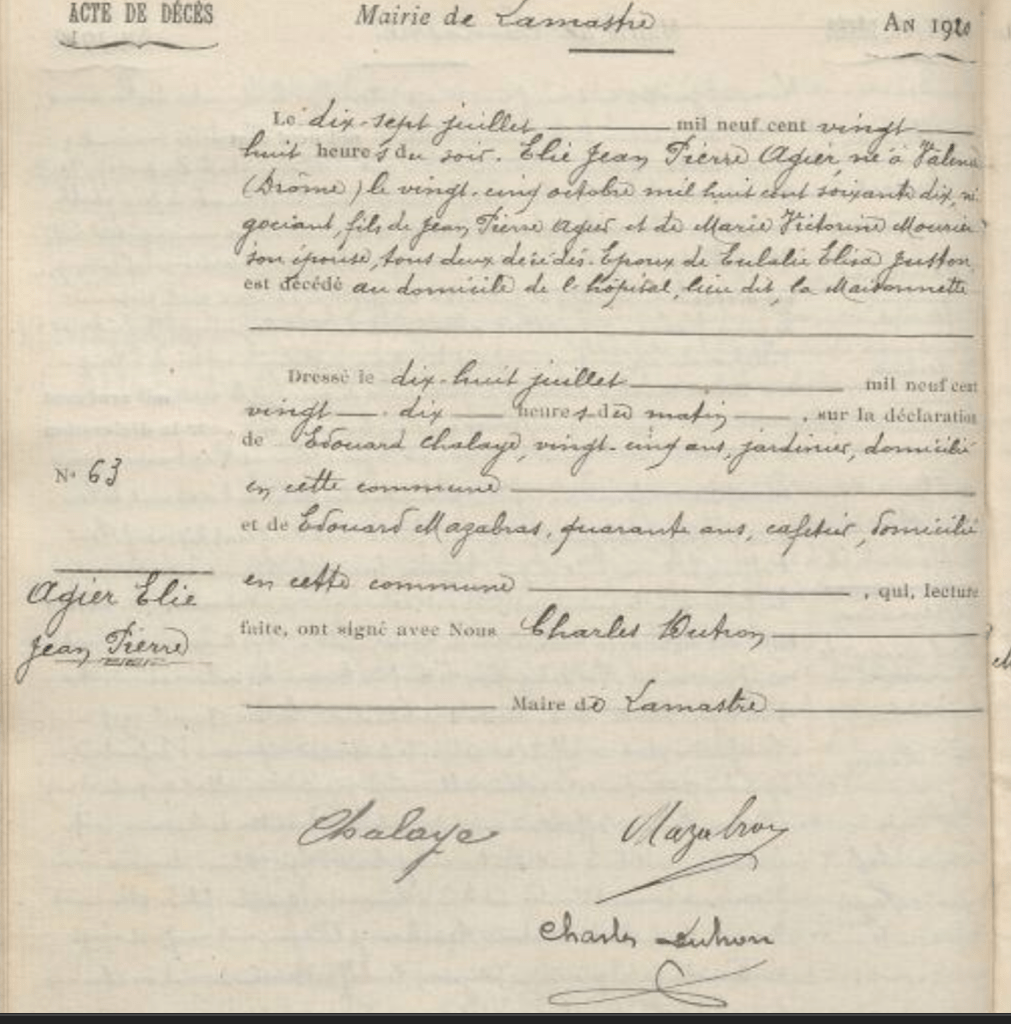 ACTE DE DÉCÈS
Mairie de Lamastre
AN 1920
Le dix-sept juillet mil neuf cent vingt
huit heures du soir. Elie Jean Pierre Agier, né à Valence
(Drôme) le vingt-cinq octobre mil huit cent soixante dix, né
gociant, fils de Jean Pierre Agier et de Marie Victorine Mourier
son épouse, tous deux décédés. Epoux de Eulalie Elisa Juston
est décédé au domicile de l'hôpital, lieu dit, la Maisonnette
Dressé le dix-huit juillet mil neuf cent
vingt dix heures du matin, sur la déclaration
de Edouard Chalaye, vingt-cinq ans, jardinier, domicilié
en cette commune
N° 63
et de Edouard Mazabras, quarante ans, cafetier, domicilié
Agier Elie
Jean Pierre
en cette commune, qui, lecture
faite, ont signé avec Nous Charles Dutron
Maire de Lamastre
Chalaye
Mazabras
Charles Dutron